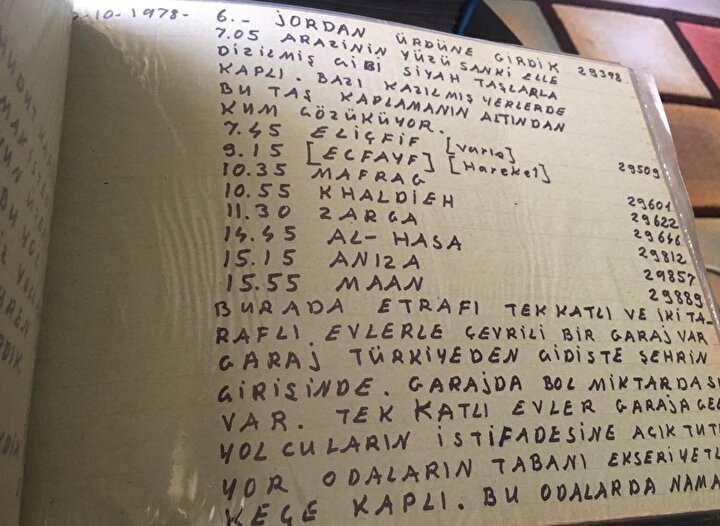 -10-1978- 6.- JORDAN ÜRDÜNE GİRDİK 29398
7.05 ARAZİNİN YÜZÜ SANKİ ELLE
DİZİLMİŞ GİBİ SİYAH TAŞLARLA
KAPLI. BAZI KAZILMIŞ YERLERDE
BU TAŞ KAPLAMANIN ALTINDAN
KUM GÖZÜKÜYOR.
7.45 ELİÇFİF [Varış]
9.15 [ECFAYF] [Hareket] 29509
10.35 MAFRAG
10.55 KHALDIEH 29601
11.30 ZARGA 29622
14.45 AL-HASA 29646
15.15 ANIZA 29812
15.55 MAAN 29857
29889
BURADA ETRAFI TEK KATLI VE İKİ TA-
RAFLI EVLERLE ÇEVRİLİ BİR GARAJ VAR
GARAJ TÜRKİYEDEN GİDİŞTE ŞEHRİN
GİRİŞİNDE. GARAJDA BOL MİKTARDA S
VAR. TEK KATLI EVLER GARAJA GEL
YOLCULARIN İSTİFADESİNE AÇIK TUT
YOR ODALARIN TABANI EKSERİYETL
KEÇE KAPLI. BU ODALARDA NAMA